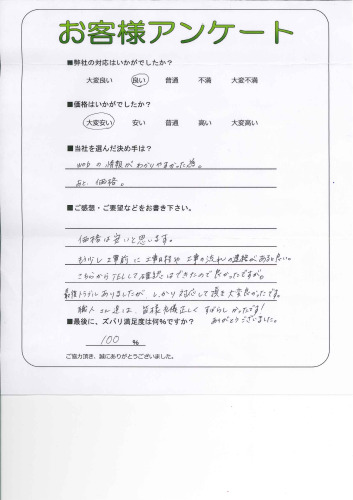 お客様アンケート
■弊社の対応はいかがでしたか？
大変良い 良い 普通 不満 大変不満
■価格はいかがでしたか？
大変安い 安い 普通 高い 大変高い
■当社を選んだ決め手は？
webの情報がわかりやすかった為。
あと、価格。
■ご感想・ご要望などをお書き下さい。
価格は安いと思います。
もう少し工事前に工事日程や工事の流れの連絡があると良い。
こちらからTELして確認はできたので良かったですが。
最後トラブルありましたが、しっかり対応して頂き大変良かったです。
職人さん達は、皆様礼儀正しくすばらしかったです！
ありがとうございました。
■最後に、ズバリ満足度は何％ですか？
100 ％
ご協力頂き、誠にありがとうございました。